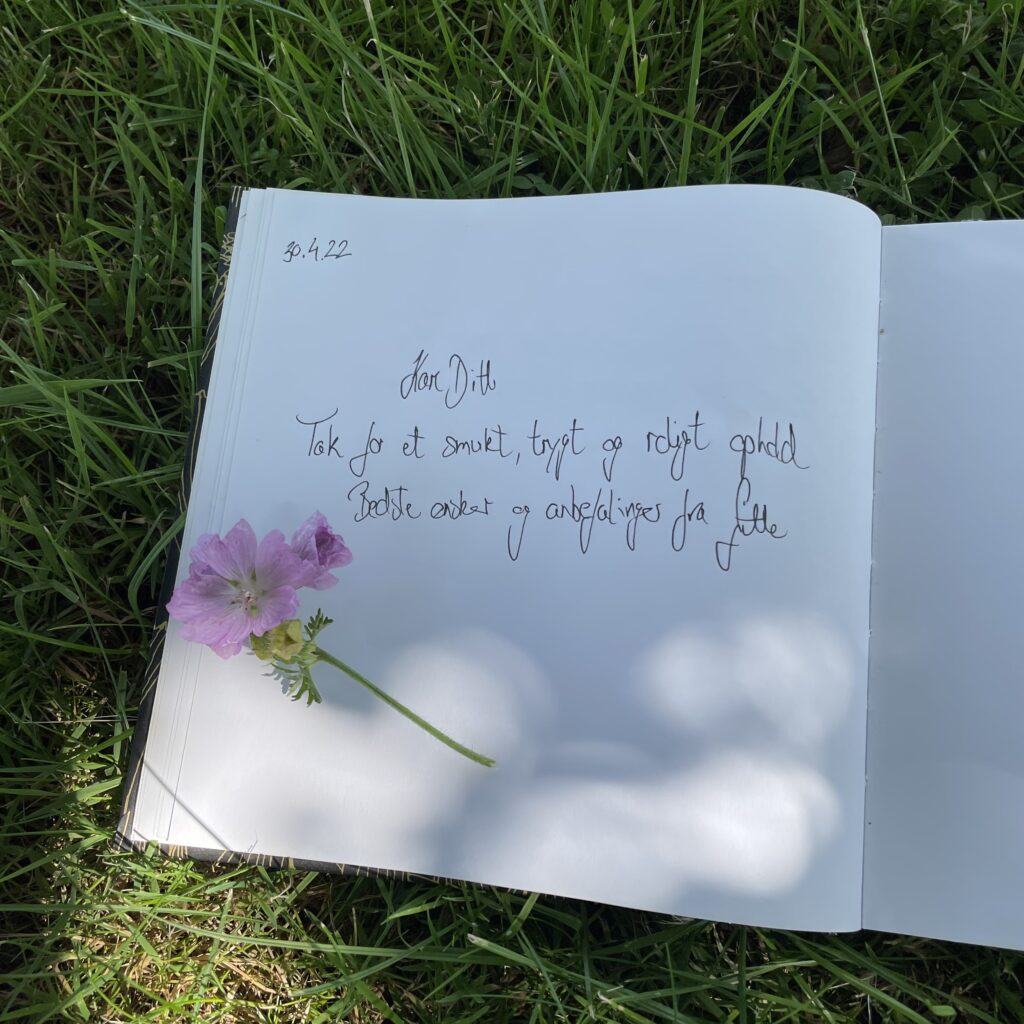 30.4.22
Kære Ditte
Tak for et smukt, trygt og roligt ophold
Bedste ønsker og anbefalinger fra